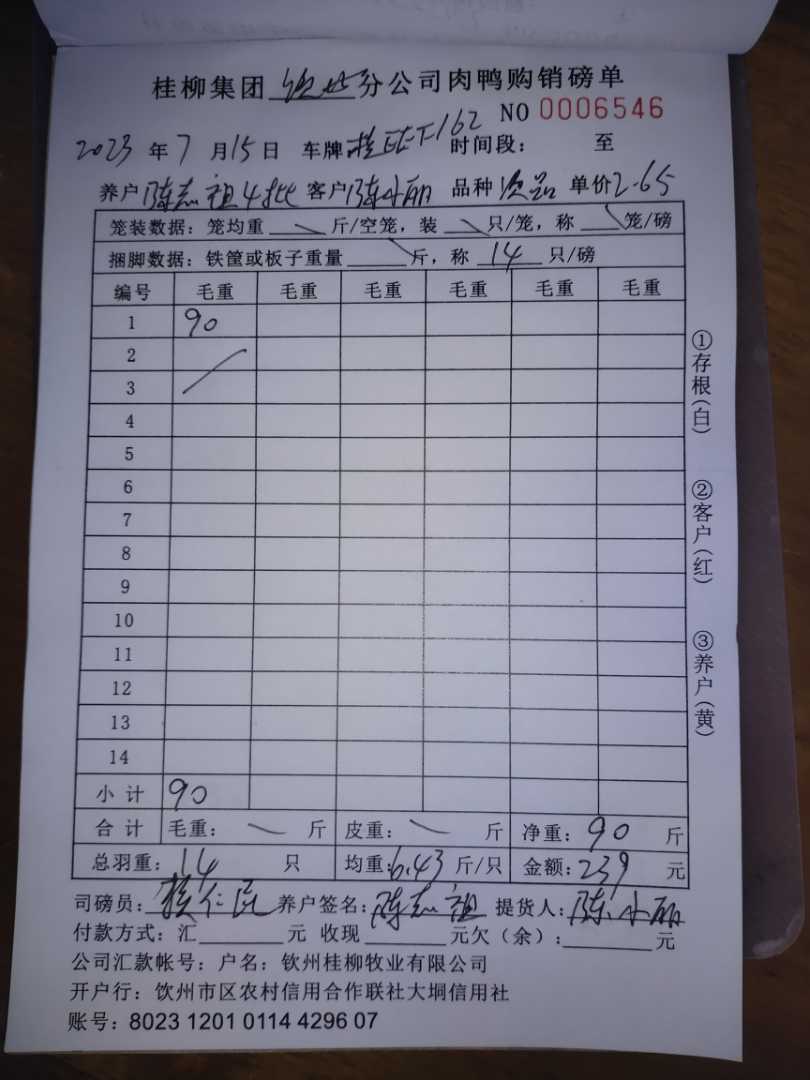 桂柳集团 钦州 分公司肉鸭购销磅单
NO 0006546
2023 年 7 月 15 日 车牌 桂 162 时间段: 至
养户 陈志祖4批 客户 陈小丽 品种 次品 单价 2.65
笼装数据: 笼均重 斤/空笼, 装 只/笼, 称 笼/磅
捆脚数据: 铁筐或板子重量 斤, 称 14 只/磅
编号 毛重 毛重 毛重 毛重 毛重 毛重
1 90
2
3
4
5
6
7
8
9
10
11
12
13
14
小计 90
合计 毛重: 斤 皮重: 斤 净重: 90 斤
总羽重: 14 只 均重: 6.43 斤/只 金额: 239 元
司磅员: 养户签名: 陈志祖 提货人: 陈小丽
付款方式: 汇 元 收现 元欠(余): 元
公司汇款帐号: 户名: 钦州桂柳牧业有限公司
开户行: 钦州市区农村信用合作联社大垌信用社
账号: 8023 1201 0114 4296 07
①存根(白)
②客户(红)
③养户(黄)